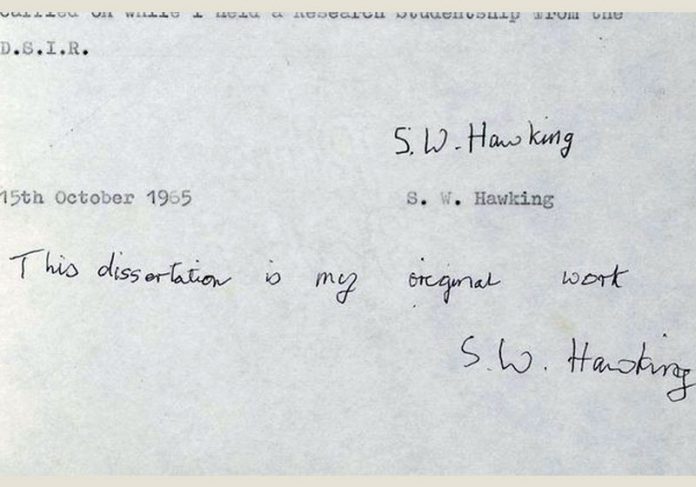 carried on while I held a Research Studentship from the
D.S.I.R.
S. W. Hawking
15th October 1965 S. W. Hawking
This dissertation is my original work
S. W. Hawking